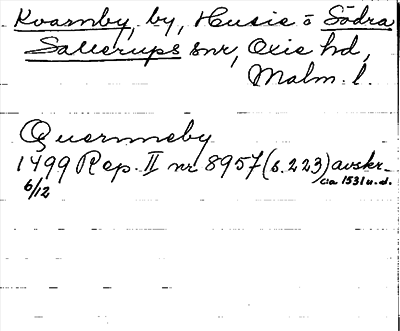 Kvarnby, by, Husie o Södra
Sallerups snr, Oxie hd,
Malm. l.
Quermeby
1499 Rep. II nr 8957 (s. 223) avskr.
6/12 ca 1531 u.d.